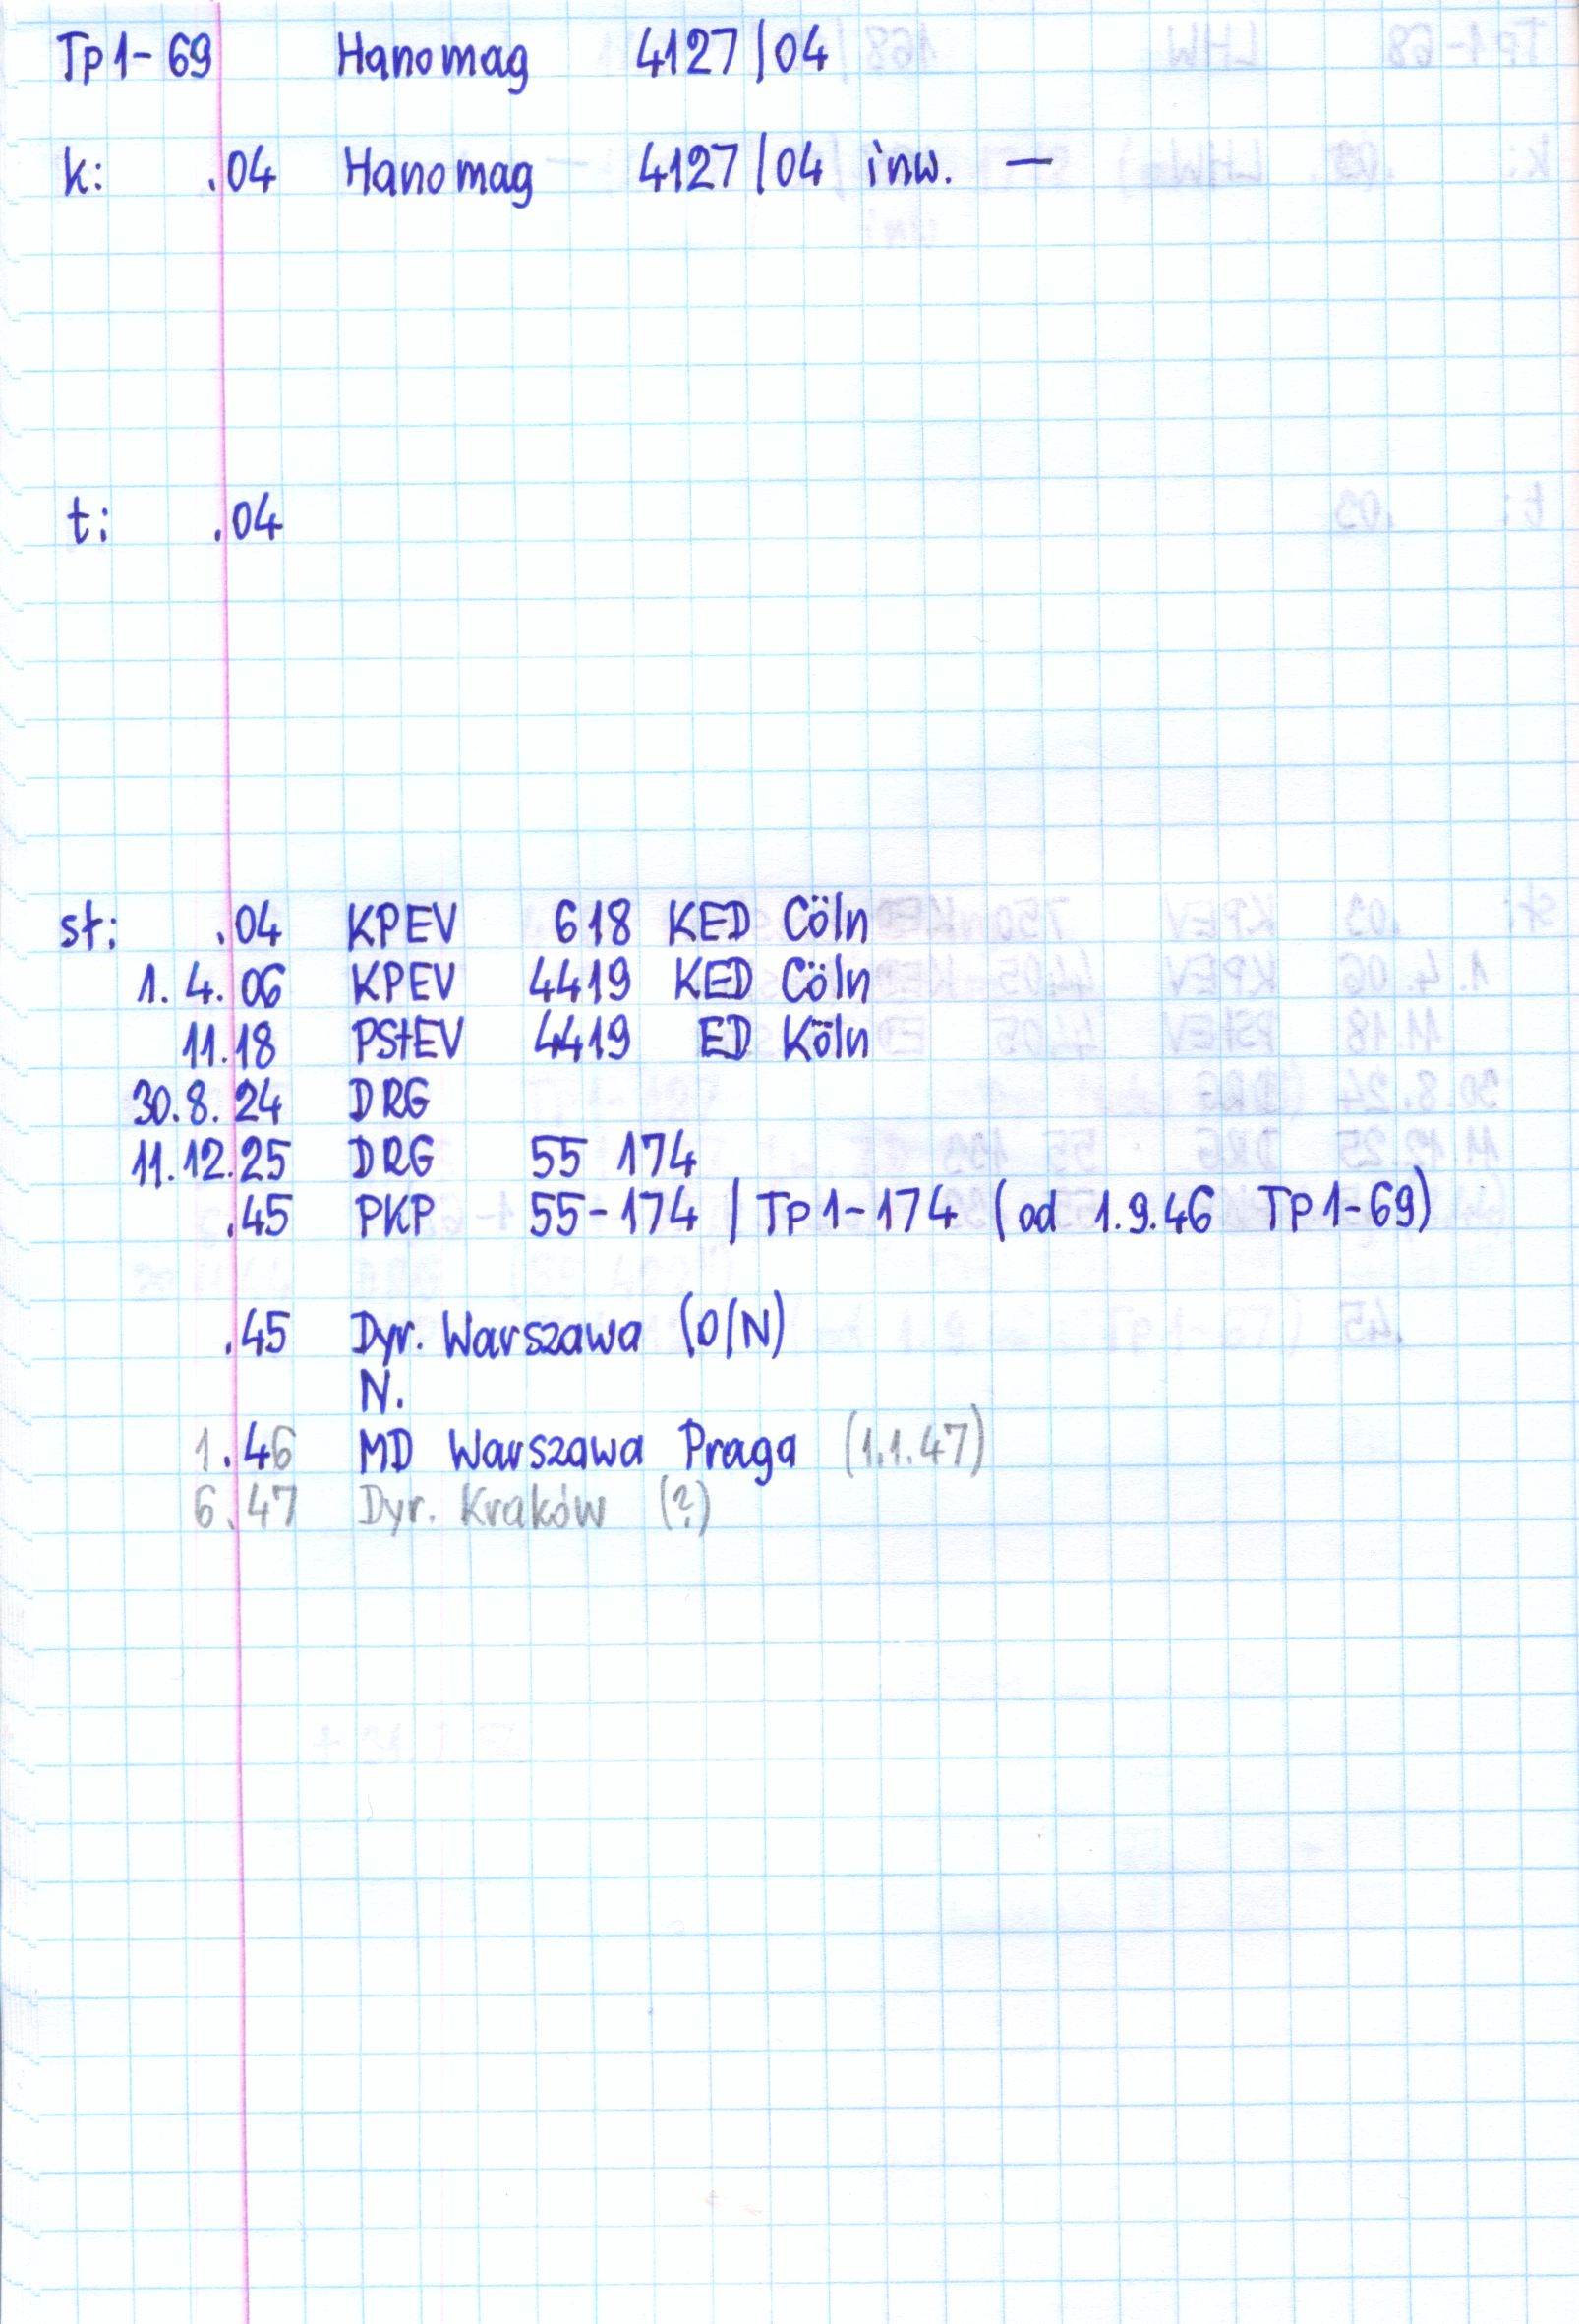 Tp1-69 Hanomag 4127/04
k: .04 Hanomag 4127/04 inw. —
t: .04
st: .04 KPEV 618 KED Cöln
1.4.06 KPEV 4419 KED Cöln
11.18 PStEV 4419 ED Köln
30.8.24 DRG
11.12.25 DRG 55 174
.45 PKP 55-174 / Tp1-174 (od 1.9.46 Tp1-69)
.45 Dyr. Warszawa (O/N)
N.
1.46 MD Warszawa Praga (1.1.47)
6.47 Dyr. Kraków (?)